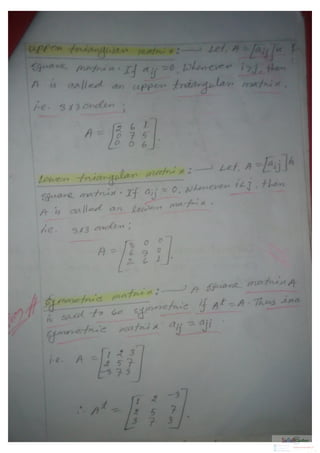 Upper triangular matrix: → Let, A = [aij] n
square matrix. If aij = 0. Whenever i>j, then
A is called an upper triangular matrix.
i.e. 3x3 order;
A = [2 6 1
0 7 5
0 0 6].
Lower triangular matrix: → Let, A = [aij] b
square matrix. If aij = 0, Whenever i<j. then
A is called an lower matrix.
i.e. 3x3 order;
A = [5 0 0
6 9 0
2 6 1].
Symmetric matrix: → A square matrix A
is said to be symmetric if At = A. Thus in a
symmetric matrix aij = aji.
i.e. A = [1 2 3
2 5 7
-3 7 3]
∴ At = [1 2 -3
2 5 7
3 7 3].